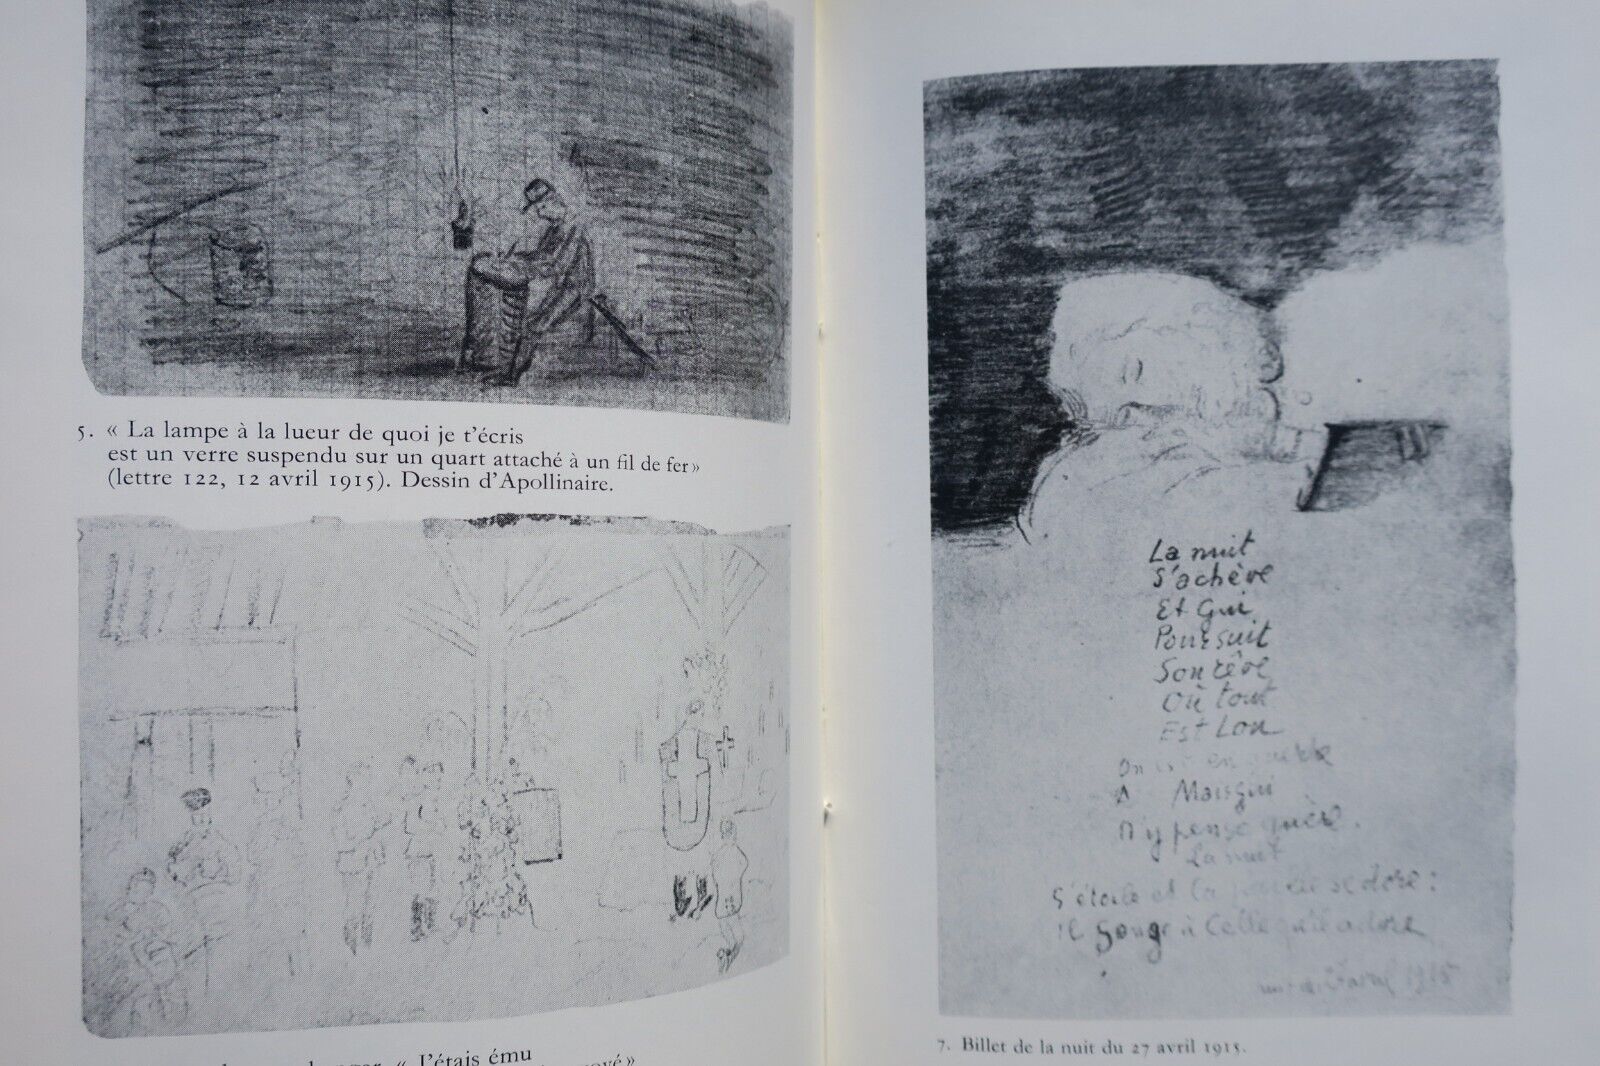 5. « La lampe à la lueur de quoi je t'écris
est un verre suspendu sur un quart attaché à un fil de fer»
(lettre 122, 12 avril 1915). Dessin d'Apollinaire.
« J'étais ému
La nuit
S'achève
Et Gui
Poursuit
Son rêve
Où tout
Est Lou
On est en guerre
Mais Gui
N'y pense guère.
La nuit
S'étoile et la paille se dore:
Il Songe à Celle qu'il adore
1915
7. Billet de la nuit du 27 avril 1915.